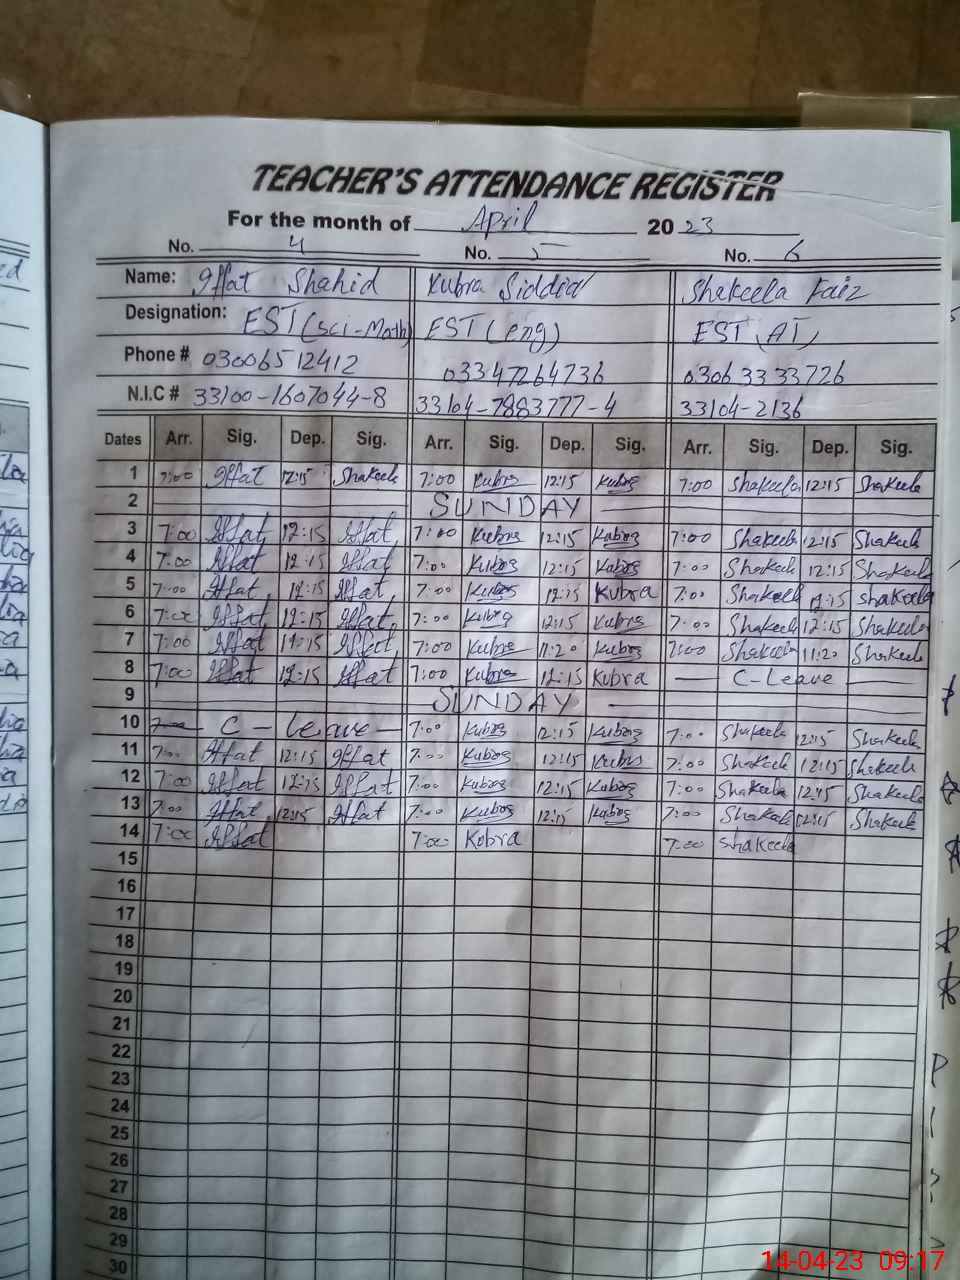 TEACHER'S ATTENDANCE REGISTER
For the month of April 2023
No. 4 No. 5 No. 6
Name: Iffat Shahid Kubra Siddiqa Shakeela Faiz
Designation: EST (Sci-Math) EST (eng) EST (AT)
Phone # 03006512412 03347264736 03063333726
N.I.C # 33100-1607044-8 33104-7883777-4 33104-2136
Dates Arr. Sig. Dep. Sig. Arr. Sig. Dep. Sig. Arr. Sig. Dep. Sig.
1 7:00 Iffat 12:15 Shakeela 7:00 Kubra 12:15 Kubra 7:00 Shakeela 12:15 Shakeela
2 SUNDAY
3 7:00 Iffat 12:15 Iffat 7:00 Kubra 12:15 Kubra 7:00 Shakeela 12:15 Shakeela
4 7:00 Iffat 12:15 Iffat 7:00 Kubra 12:15 Kubra 7:00 Shakeela 12:15 Shakeela
5 7:00 Iffat 12:15 Iffat 7:00 Kubra 12:15 Kubra 7:00 Shakeela 12:15 Shakeela
6 7:00 Iffat 12:15 Iffat 7:00 Kubra 12:15 Kubra 7:00 Shakeela 12:15 Shakeela
7 7:00 Iffat Iffat 7:00 Kubra 11:20 Kubra 7:00 Shakeela 11:20 Shakeela
8 7:00 Iffat 12:15 Iffat 7:00 Kubra 12:15 Kubra C-Leave
9 SUNDAY
10 C-Leave 7:00 Kubra 12:15 Kubra 7:00 Shakeela 12:15 Shakeela
11 7:00 Iffat 12:15 Iffat 7:00 Kubra 12:15 Kubra 7:00 Shakeela 12:15 Shakeela
12 7:00 Iffat 12:15 Iffat 7:00 Kubra 12:15 Kubra 7:00 Shakeela 12:15 Shakeela
13 7:00 Iffat 12:15 Iffat 7:00 Kubra 12:15 Kubra 7:00 Shakeela 12:15 Shakeela
14 7:00 Iffat 7:00 Kobra 7:00 Shakeela
15
16
17
18
19
20
21
22
23
24
25
26
27
28
29
30
14-04-23 09:17